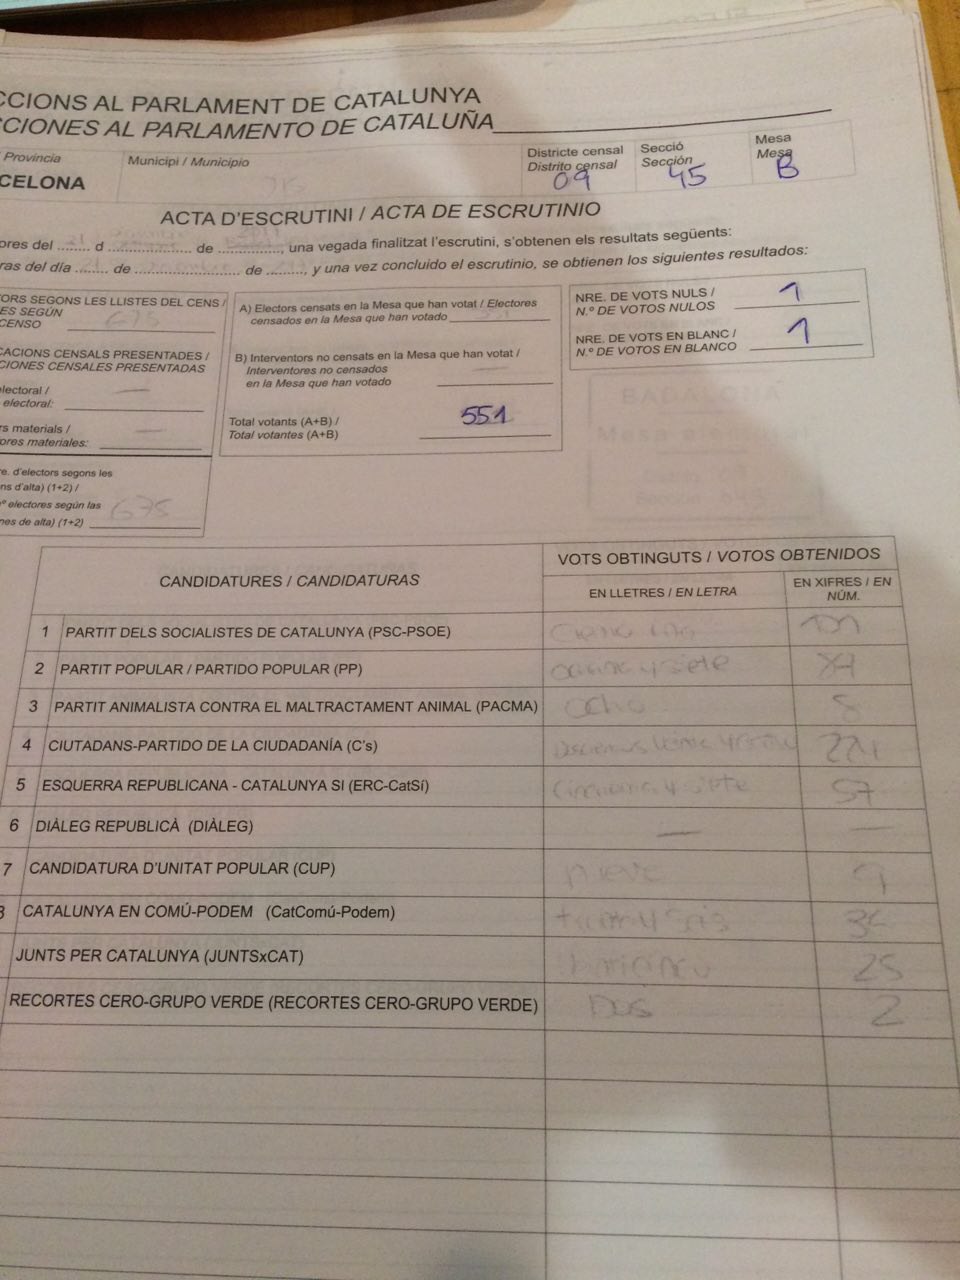 CCIONS AL PARLAMENT DE CATALUNYA
CCIONES AL PARLAMENTO DE CATALUÑA
Provincia
CELONA
Municipi / Municipio
Districte censal
Distrito censal
09
Secció
Sección
45
Mesa
Mesa
B
ACTA D'ESCRUTINI / ACTA DE ESCRUTINIO
ores del ........ d .................... de ..............., una vegada finalitzat l'escrutini, s'obtenen els resultats següents:
ras del día ........ de .......................... de .........., y una vez concluido el escrutinio, se obtienen los siguientes resultados:
TORS SEGONS LES LLISTES DEL CENS /
ES SEGÚN
CENSO
675
CACIONS CENSALS PRESENTADES /
CIONES CENSALES PRESENTADAS
electoral /
electoral:
rs materials /
ores materiales:
re. d'electors segons les
ns d'alta) (1+2) /
nº electores según las
nes de alta) (1+2)
675
A) Electors censats en la Mesa que han votat / Electores
censados en la Mesa que han votado
B) Interventors no censats en la Mesa que han votat /
Interventores no censados
en la Mesa que han votado
Total votants (A+B) /
Total votantes (A+B)
551
NRE. DE VOTS NULS /
N.º DE VOTOS NULOS
1
NRE. DE VOTS EN BLANC /
N.º DE VOTOS EN BLANCO
1
BADALONA
Mesa electoral
CANDIDATURES / CANDIDATURAS
VOTS OBTINGUTS / VOTOS OBTENIDOS
EN LLETRES / EN LETRA
EN XIFRES / EN
NÚM.
1 PARTIT DELS SOCIALISTES DE CATALUNYA (PSC-PSOE)
2 PARTIT POPULAR / PARTIDO POPULAR (PP) y siete
3 PARTIT ANIMALISTA CONTRA EL MALTRACTAMENT ANIMAL (PACMA) Ocho 8
4 CIUTADANS-PARTIDO DE LA CIUDADANÍA (C's)
5 ESQUERRA REPUBLICANA - CATALUNYA SI (ERC-CatSí) Cincuenta y siete 57
6 DIÀLEG REPUBLICÀ (DIÀLEG) — —
7 CANDIDATURA D'UNITAT POPULAR (CUP) nueve 9
8 CATALUNYA EN COMÚ-PODEM (CatComú-Podem)
JUNTS PER CATALUNYA (JUNTSxCAT) 25
RECORTES CERO-GRUPO VERDE (RECORTES CERO-GRUPO VERDE) Dos 2